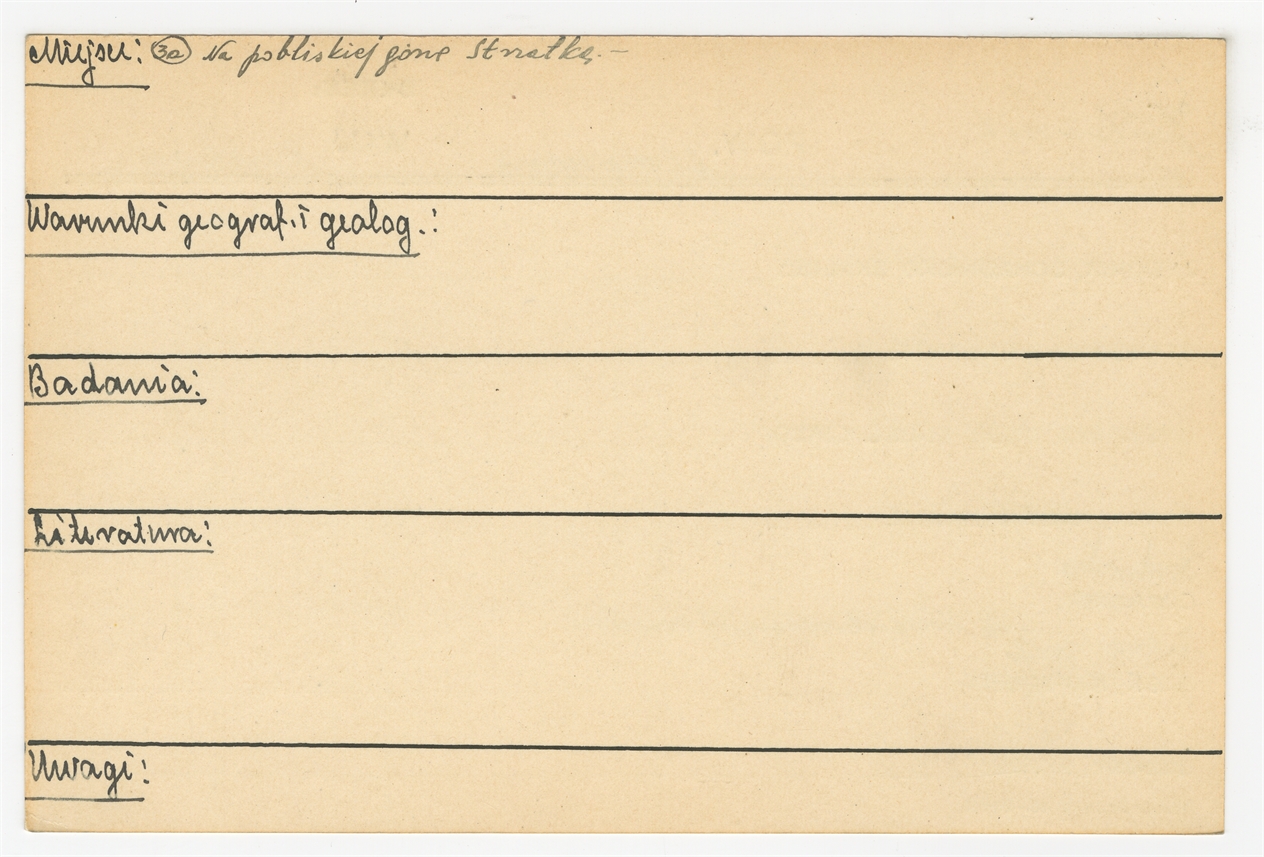 Miejsce: 3a Na pobliskiej górze
Warunki geograf. i geolog.:
Badania:
Literatura:
Uwagi: